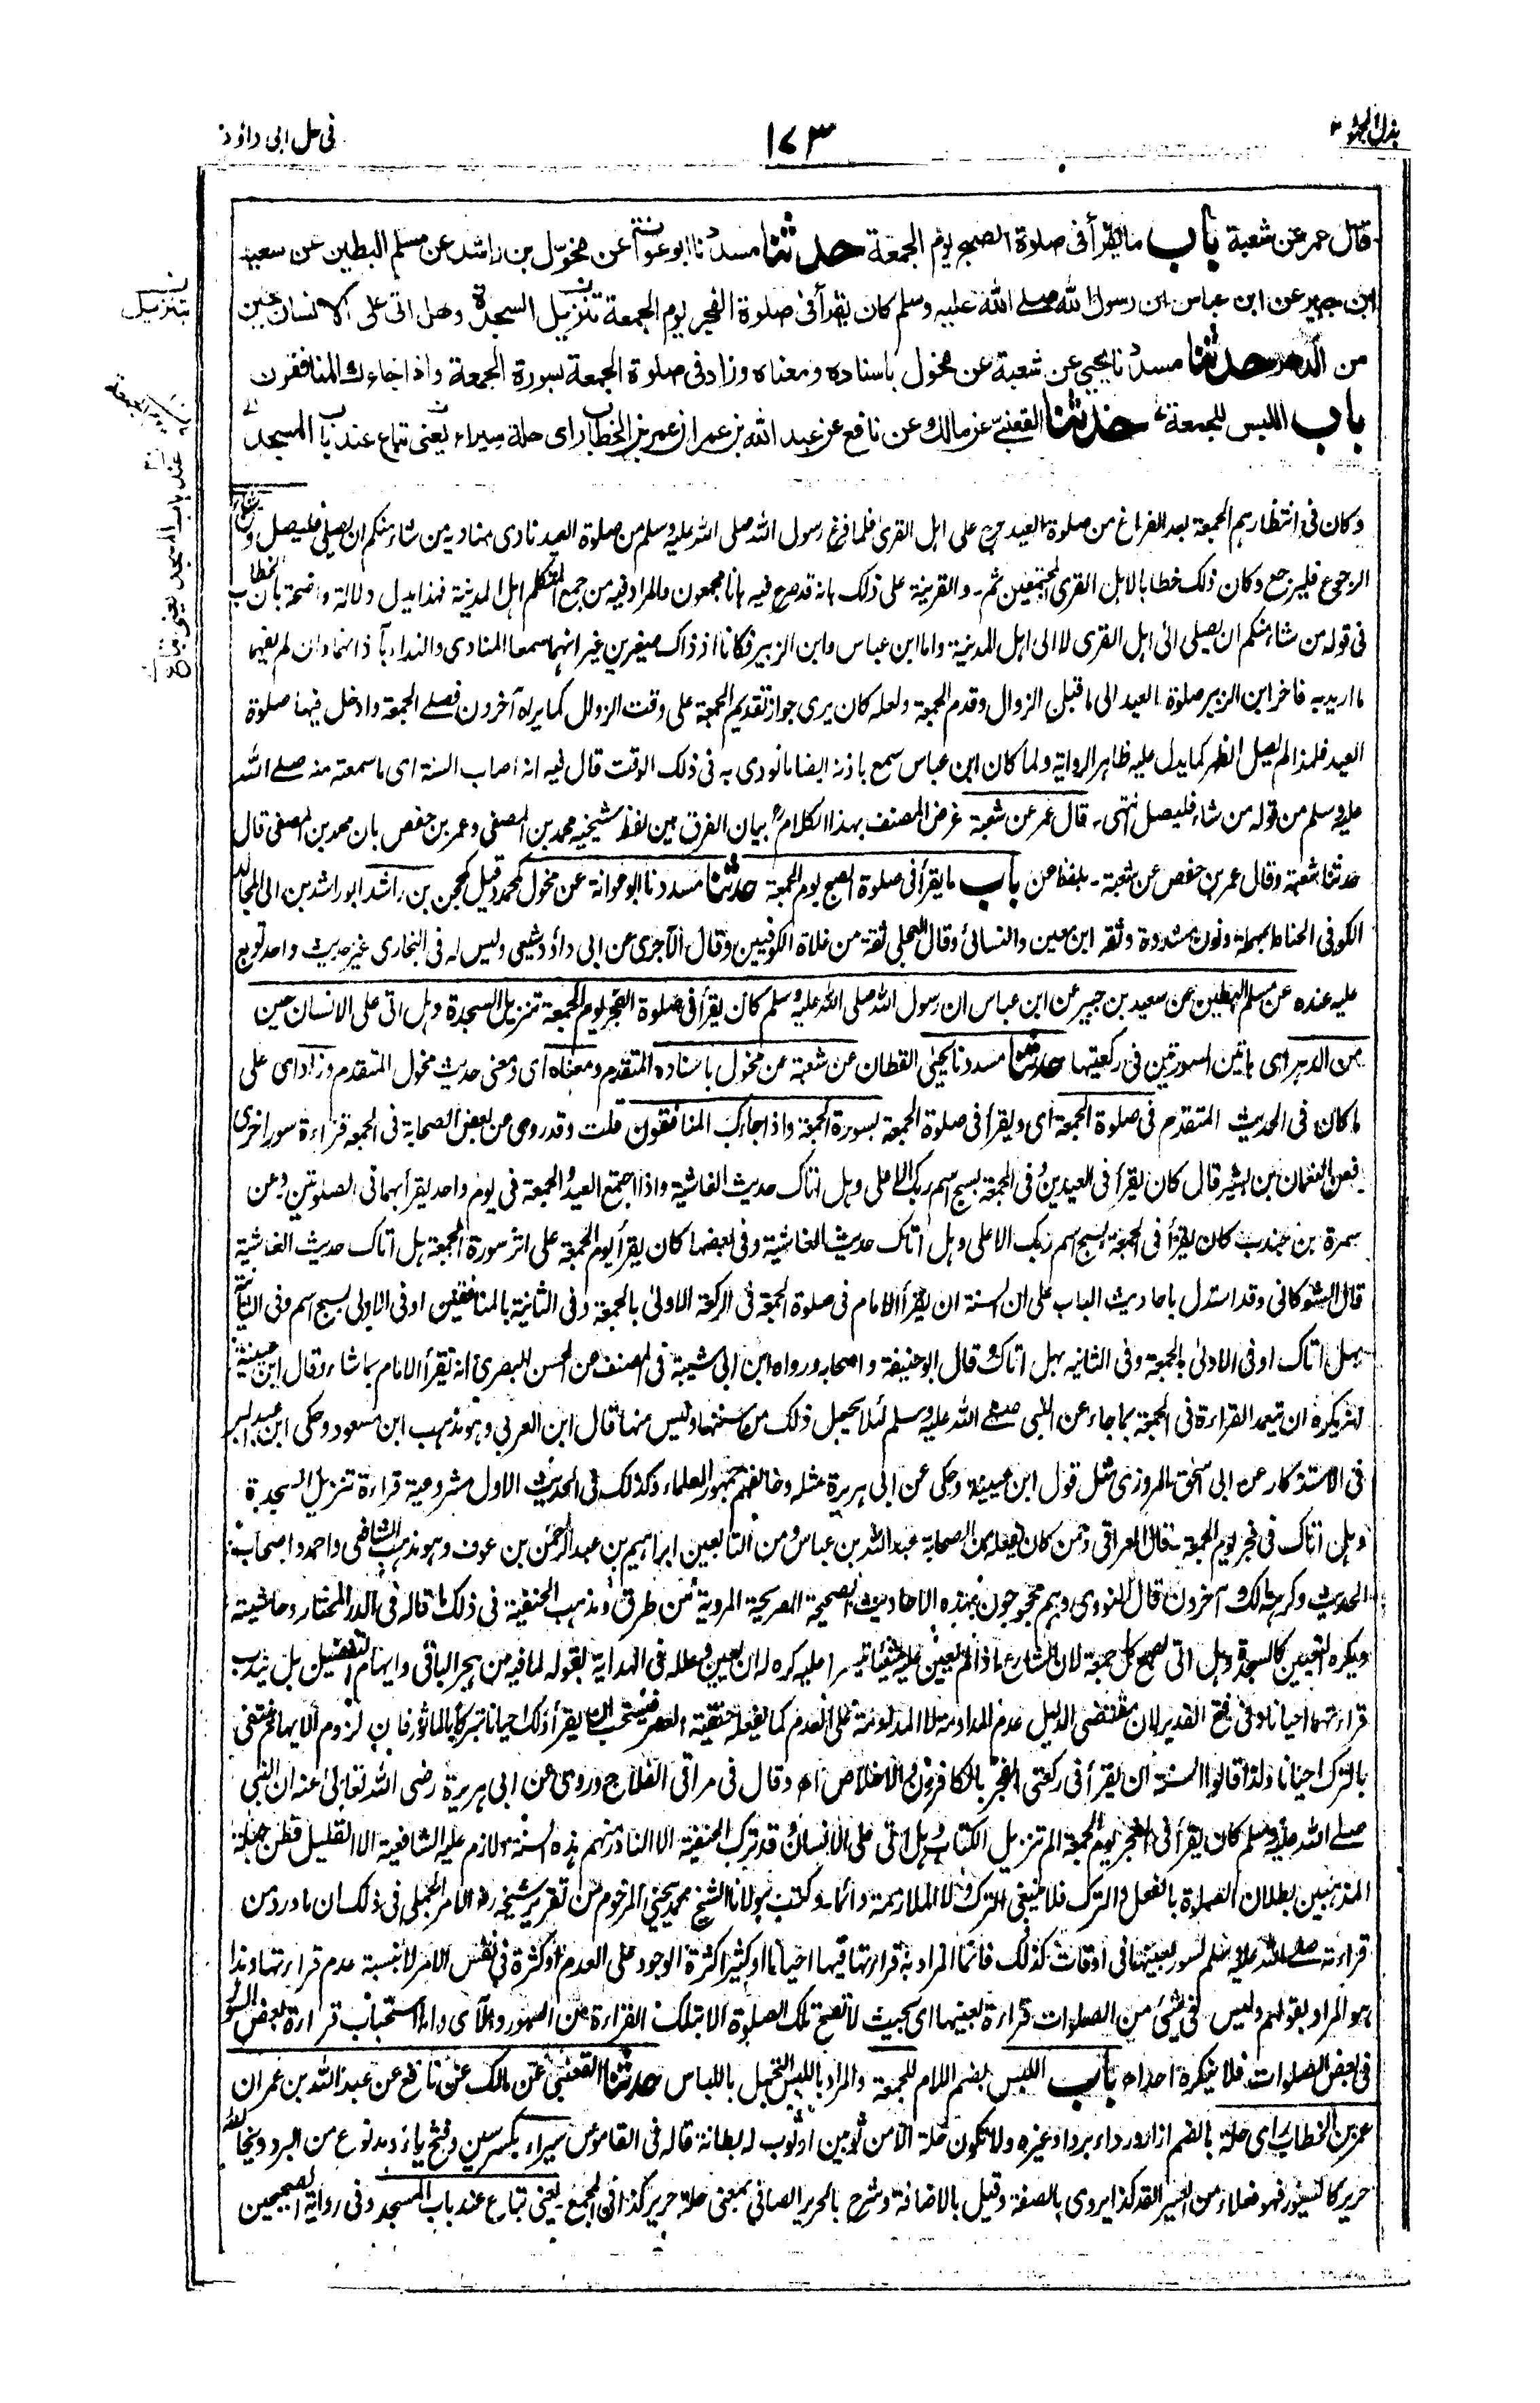 بذل المجهود
١٧٣
فى حل ابى داؤد
قال عمر عن شعبة باب ما يقرأ فى صلوة الصبح يوم الجمعة حدثنا مسدد نا ابو عوانة عن مخول بن راشد عن مسلم البطين عن سعيد
ابن جبير عن ابن عباس ان رسول الله صلے الله عليه وسلم كان يقرأ فى صلوة الفجر يوم الجمعة تنزيل السجدة وهل اتى على الانسان حين
من الدهر حدثنا مسدد نا يحيى عن شعبة عن مخول باسناده ومعناه وزاد فى صلوة الجمعة بسورة الجمعة واذا جاءك المنافقون
باب اللبس للجمعة حدثنا القعنبى عن مالك عن نافع عن عبد الله بن عمر ان عمر بن الخطاب راى حلة سيراء يعنى تباع عند باب المسجد
بتنزيل
عند باب المسجد يعنى تباع
وكان فى انتظارهم الجمعة بعد الفراغ من صلوة العيد حرج على اهل القرى فلما فرغ رسول الله صلى الله عليه وسلم من صلوة العيد نادى مناديه من شاء منكم ان يصلى فليصل ومن شاء
الرجوع فليرجع وكان ذلك خطابا لاهل القرى المجتمعين ثم ـ والقرينة على ذلك بانه قد صرح فيه بانا مجمعون والمراد فيه من جمع المتكلم اهل المدينة فهذا يدل دلالة واضحة بان الخطاب
فى قوله من شاء منكم ان يصلى الى اهل القرى لا الى اهل المدينة واما ابن عباس وابن الزبير فكانا اذ ذاك صغيرين غير انهما سمعا المنادى والنداء بآذانهما وان لم يفهما
ما اريد به فاخر ابن الزبير صلوة العيد الى ما قبل الزوال وقدم الجمعة ولعله كان يرى جواز تقديم الجمعة على وقت الزوال كما يراه آخرون فصلے الجمعة وادخل فيها صلوة
العيد فلهذا لم يصل الظهر كما يدل عليه ظاهر الرواية ولما كان ابن عباس سمع باذنه ايضا ما نودى به فى ذلك الوقت قال فيه انه اصاب السنة اى ما سمعته منه صلے الله
عليه وسلم من قوله من شاء فليصل انتهى ـ قال عمر عن شعبة غرض المصنف بهذا الكلام بيان الفرق بين لفظ شيخيه محمد بن المصفى وعمر بن حفص بان محمد بن المصفى قال
حدثنا شعبة وقال عمر بن حفص عن شعبة ـ بلفظ عن باب ما يقرأ فى صلوة الصبح يوم الجمعة حدثنا مسدد نا ابو عوانة عن مخول كمحمد وقيل كمجن بن راشد ابو راشد بن ابى المجالد
الكوفى الحناط بمهملة ونون مشددة وثقه ابن معين والنسائى وقال العجلى ثقة من غلاة الكوفيين وقال الآجرى عن ابى داؤد شيعى وليس له فى البخارى غير حديث واحد توبع
عليه عنده عن مسلم البطين عن سعيد بن جبير عن ابن عباس ان رسول الله صلى الله عليه وسلم كان يقرأ فى صلوة الفجر يوم الجمعة تنزيل السجدة وهل اتى على الانسان حين
من الدهر اى هاتين السورتين فى ركعتيها حدثنا مسدد نا يحيى القطان عن شعبة عن مخول باسناده المتقدم ومعناه اى ومعنى حديث مخول المتقدم وزاد اى على
ما كان فى الحديث المتقدم فى صلوة الجمعة اى ويقرأ فى صلوة الجمعة بسورة الجمعة واذا جاءك المنافقون قلت وقد روى عن بعض الصحابة فى الجمعة قراءة سور اخرى
فعن النعمان بن بشير قال كان يقرأ فى العيدين وفى الجمعة بسبح اسم ربك الاعلى وهل اتاك حديث الغاشية واذا اجتمع العيد والجمعة فى يوم واحد يقرأ بهما فى الصلوتين وعن
سمرة بن جندب كان يقرأ فى الجمعة بسبح اسم ربك الاعلى وهل اتاك حديث الغاشية وفى بعضها كان يقرأ يوم الجمعة على اثر سورة الجمعة هل اتاك حديث الغاشية
قال الشوكانى وقد استدل باحاديث الباب على ان السنة ان يقرأ الامام فى صلوة الجمعة فى الركعة الاولى بالجمعة وفى الثانية بالمنافقين او فى الاولى بسبح اسم وفى الثانية
بهل اتاك او فى الاولى بالجمعة وفى الثانيه بهل اتاك وقال ابو حنيفة واصحابه ورواه ابن ابى شيبة فى المصنف عن الحسن البصرى انه تقرأ الامام بما شاء وقال ابن عيينة
انه يكره ان يتعمد القراءة فى الجمعة بما جاء عن النبى صلے الله عليه وسلم لئلا يجعل ذلك من سننها وليس منها قال ابن العربى وهو مذهب ابن مسعود وحكى ابن عبد البر
فى الاستذكار عن ابى اسحق المروزى مثل قول ابن عيينة وحكى عن ابى هريرة مثله وخالفهم جمهور العلماء وكذلك فى الحديث الاول مشروعية قراءة تنزيل السجدة
وهل اتاك فى فجر يوم الجمعة ـ قال العراقى وممن كان يفعله من الصحابة عبد الله بن عباس ومن التابعين ابراهيم بن عبد الرحمن بن عوف وهو مذهب الشافعى واحمد واصحاب
الحديث وكرهه مالك وآخرون قال النووى وهم محجوجون بهذه الاحاديث الصحيحة الصريحة المروية من طرق ومذهب الحنفية فى ذلك ما قاله فى الدر المختار وحاشيته
ويكره التعيين كالسجدة وهل اتى لصبح كل جمعة لان الشارع اذا لم يعين عليه شيئا تيسيرا عليه كره له ان يعين وعلله فى الهداية بقوله لما فيه من هجر الباقى وايهام التفضيل بل يندب
قراءتهما احيانا وفى فتح القدير لان مقتضى الدليل عدم المداومة لا المداومة على العدم كما يفعله حنفية العصر فيستحب ان يقرأ ذلك احيانا تبركا بالماثور فان لزوم الايهام ينتفى
بالترك احيانا ولذا قالوا السنة ان يقرأ فى ركعتى الفجر بالكافرون والاخلاص اه وقال فى مراقى الفلاح وروى عن ابى هريرة رضى الله تعالى عنه ان النبى
صلے الله عليه وسلم كان يقرأ فى الفجر يوم الجمعة الم تنزيل الكتاب وهل اتى على الانسان وقد ترك الحنفية الا النادر منهم هذه السنة ولازم عليه الشافعية الا القليل فظن جهلة
المذهبين بطلان الصلوة بالفعل والترك فلا ينبغى الترك ولا الملازمة دائما ـ وكتب مولانا الشيخ محمد يحيى المرحوم من تقرير شيخه ره الامر الجملى فى ذلك ان ما ورد من
قراءته صلى الله عليه وسلم لسور بعينها فى اوقات كذلك فانما المراد به قراءتها فيها احيانا او كثيرا كثرة الوجود على العدم او كثرة فى نفس الامر لا بنسبة عدم قراءتها وهذا
هو المراد بقولهم وليس فى شئ من الصلوات قراءة بعينها اى بحيث لا تصح تلك الصلوة الا بتلك القراءة من السور والآى واما استحباب قراءة بعض السور
فى بعض الصلوات فلا ينكره احد اه باب اللبس بضم اللام للجمعة والمراد باللبس التجمل باللباس حدثنا القعنبى عن مالك عن نافع عن عبد الله بن عمر ان
عمر بن الخطاب راى حلة بالضم ازار ورداء برد او غيره ولا تكون حلة الا من ثوبين او ثوب له بطانة قاله فى القاموس سيراء بكسر سين وفتح ياء ومد نوع من البرد ويخالطه
حرير كالسيور فهو فعلاء من السير القد كذا يروى بالصفة وقيل بالاضافة وشرح بالحرير الصافى بمعنى حلة حرير كذا فى المجمع يعنى تباع عند باب المسجد وفى رواية الصحيحين